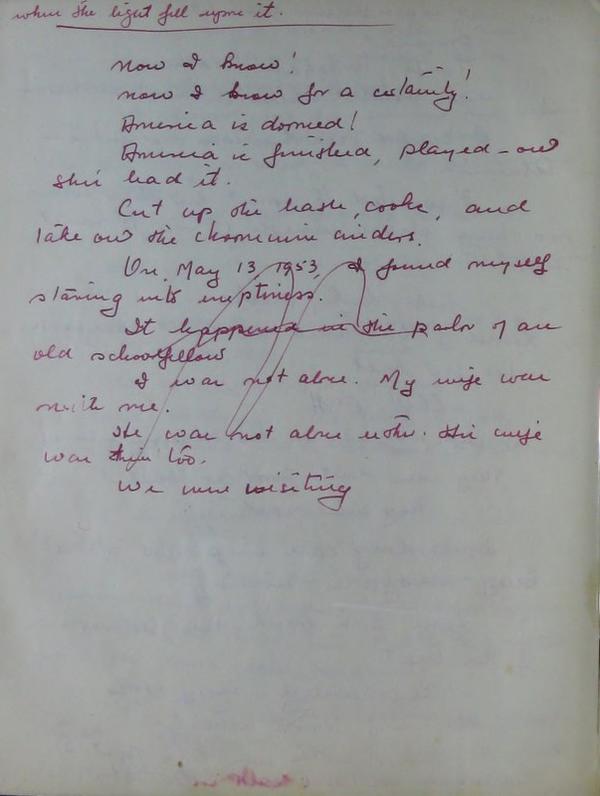 when the light fell upon it.
Now I know!
Now I know for a certainty!
America is doomed!
America is finished, played-out
She's had it.
Cut up the hash, cooke, and
take out the cinders.
On, May 13, 1953, I found myself
staring into emptiness.
It happened in the parlor of an
old schoolfellow
I was not alone. My wife was
with me.
He was not alone either. His wife
was there too.
We were visiting